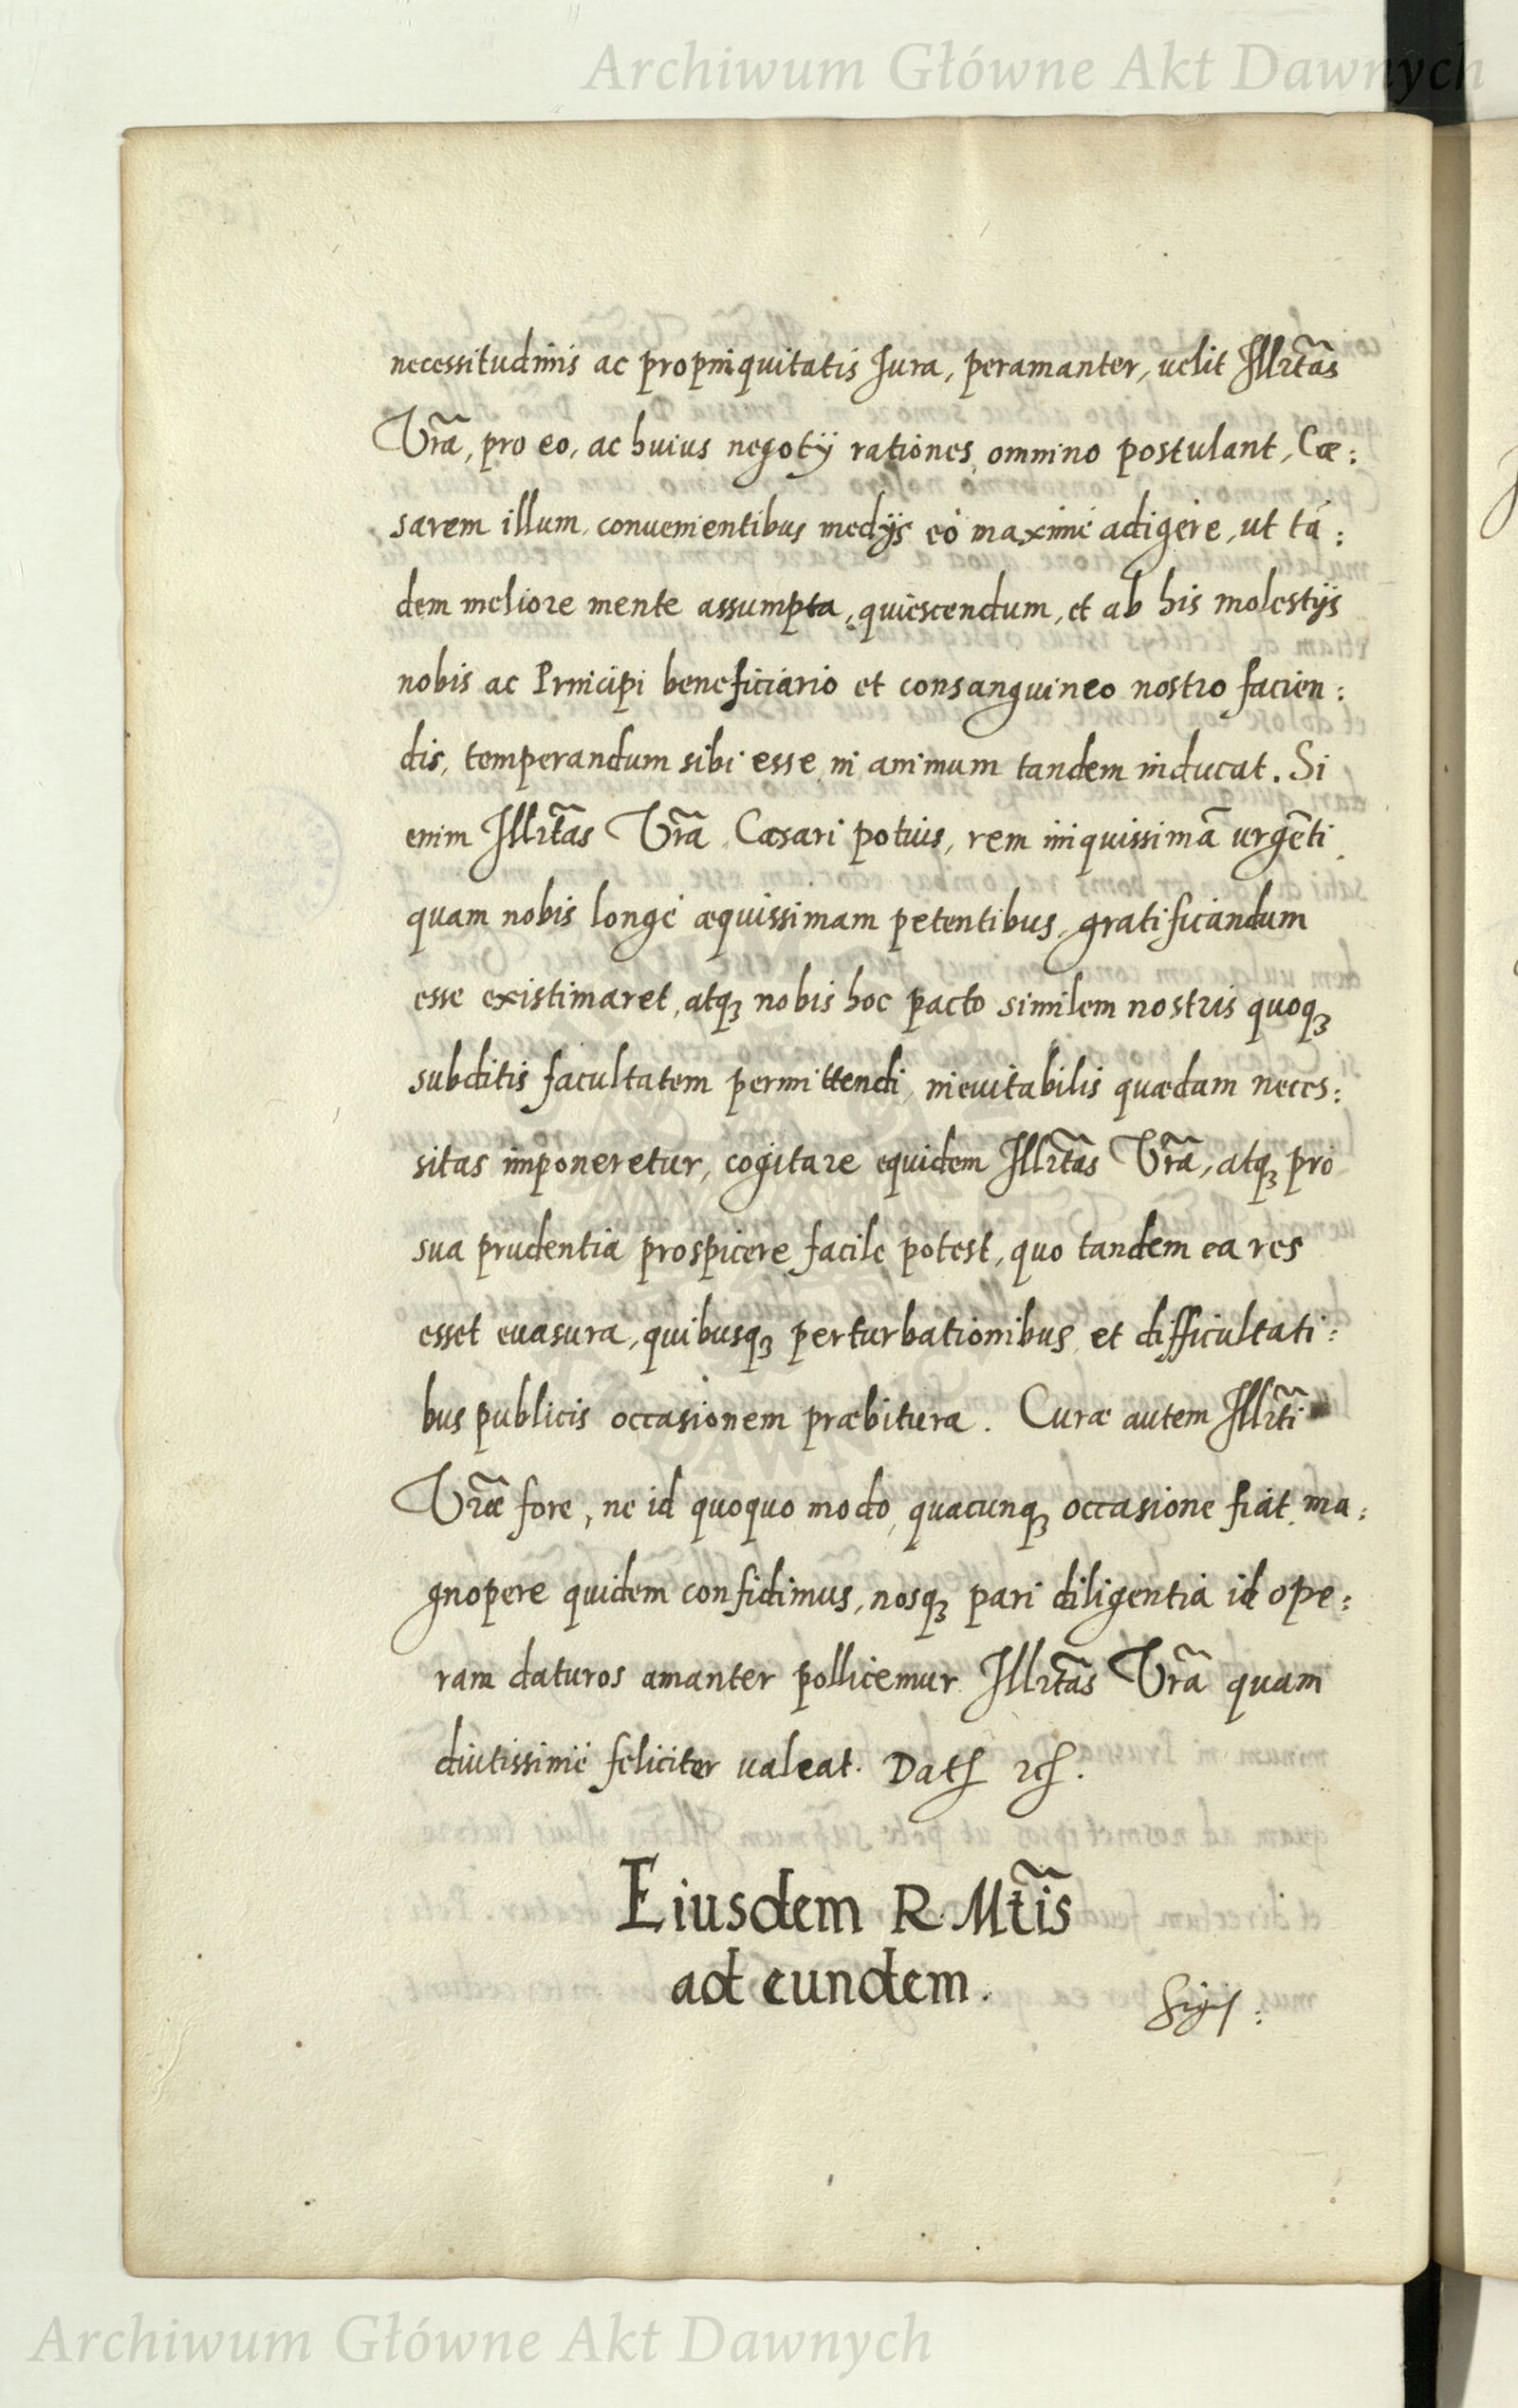 Archiwum Główne Akt Dawnych
necessitudinis ac propinquitatis Jura, peramanter, uelit Illrt̃as
Vr̃a, pro eo, ac huius negotÿ rationes omnino postulant, Cæ:
sarem illum, conuenientibus medÿs eò maximè adigere, ut tã:
dem meliore mente assumpta, quiescendum, et ab his molestÿs
nobis ac Principi beneficiario et consanguineo nostro facien:
dis, temperandum sibi esse in animum tandem inducat. Si
enim Illrt̃as Vr̃a Cæsari potuis, rem iniquissimã urgẽti
quam nobis longè æquissimam petentibus, gratificandum
esse existimaret, atqꝫ nobis hoc pacto similem nostris quoqꝫ
subditis facultatem permittendi ineuitabilis quædam neces:
sitas imponeretur, cogitare equidem Illrt̃as Vr̃a, atqꝫ pro
sua prudentia prospicere facile potest, quo tandem ea res
esset euasura, quibusqꝫ perturbationibus et difficultati:
bus publicis occasionem præbitura. Curæ autem Illrt̃i
Vr̃æ fore, ne id quoquo modo, quacunqꝫ occasione fiat, ma:
gnopere quidem confidimus, nosqꝫ pari diligentia id ope:
ram daturos amanter pollicemur Illrt̃as Vr̃a quam
diutissimè feliciter ualeat. Datꝭ ꝛcꝭ.
Eiusdem R. Mt̃is
ad eundem.
Sigis:
Archiwum Główne Akt Dawnych